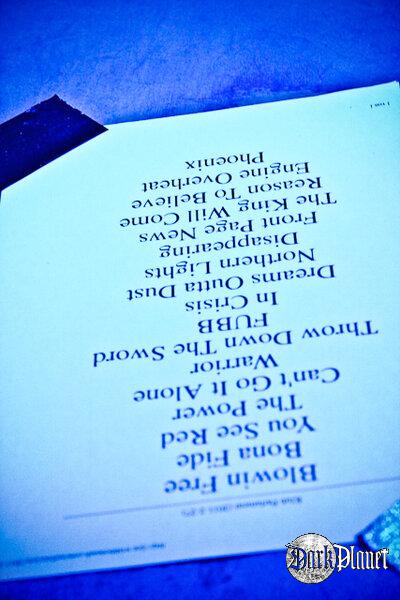 Blowin Free
Bona Fide
You See Red
The Power
Can't Go It Alone
Warrior
Throw Down The Sword
FUBB
In Crisis
Dreams Outta Dust
Northern Lights
Disappearing
Front Page News
The King Will Come
Reason To Believe
Engine Overheat
Phoenix
1 von 1
DarkPlanet